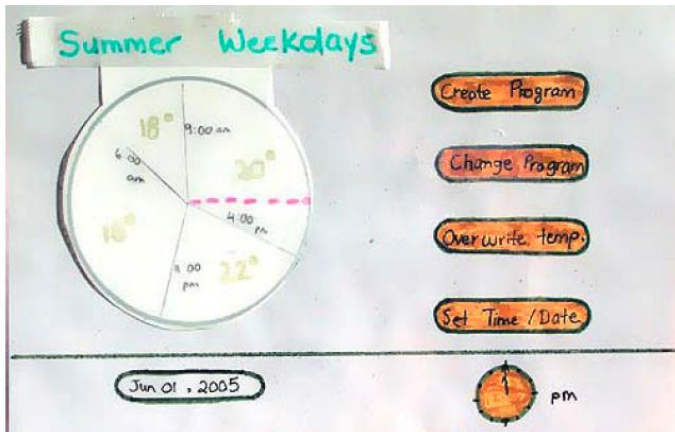 Summer Weekdays
18°
9:00 am
20°
6:00
am
4:00
pm
22°
pm
Create Program
Change Program
Overwrite temp.
Set Time / Date
Jun 01, 2005
pm